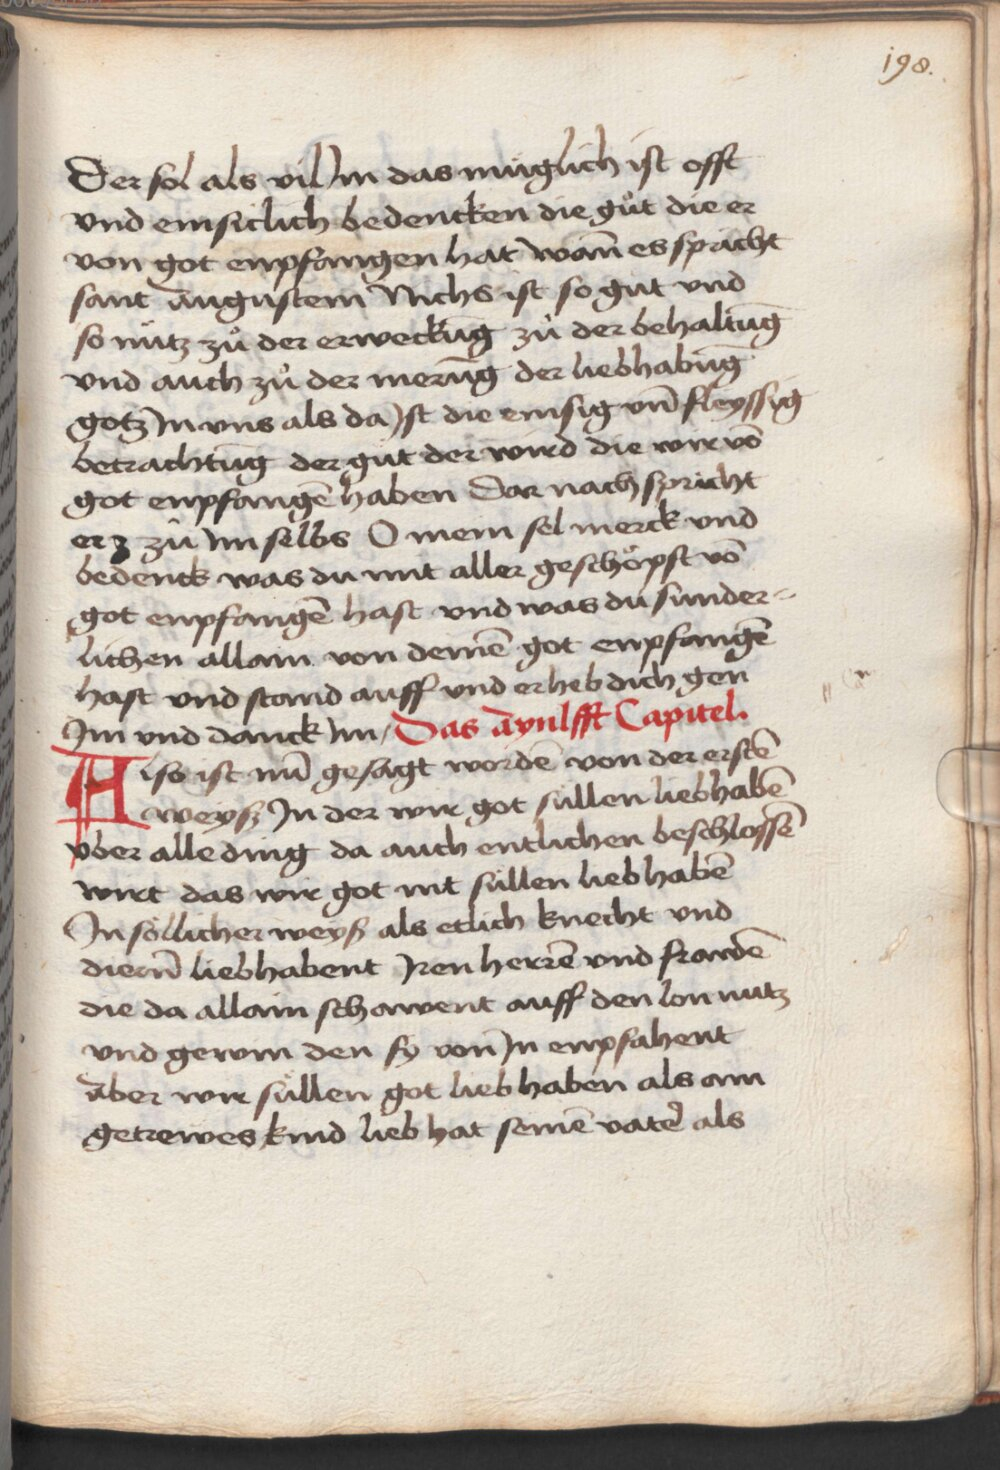 198.
Der sol als vil Jm das muglich ist offt
vnd emsiclich bedencken die gůt die er
von got enpfangen hat wan̄ es spricht
sant augustein Nichs ist so gut vnd
so nütz zů der erweckūg zů der behaltūg
vnd auch zů der merūg der liebhabūg
gotz Jn vns als da Jst die emsig vn̄ fleyssig
betrachtūg der gut der wird die wir vō
got enpfangē haben Dar nach spricht
er zů Jm selbs O mein sel merck vnd
bedenck was du mit aller geschöpft vō
got enpfangē hast vnd was du sunder-
lichen allain von deinē got enpfangē
hast vnd stand auff vnd erheb dich gen
Jm vnd danck Jm / Das aynlfft Capitel.
Also ist nū gesagt wordē von der erstē
weysz Jn der wir got süllen liebhabē
vber alle ding da auch entlichen beschlossē
wirt das wir got nit süllen liebhabē
Jn söllicher weyß als etlich knecht vnd
diern̄ liebhabent Jren herrē vnd frawē
die da allain schawent auff den lon nutz
vnd gewin den sy von Jn enpfahent
aber wir süllen got lieb haben als ain
getrewes kind lieb hat seinē vater als